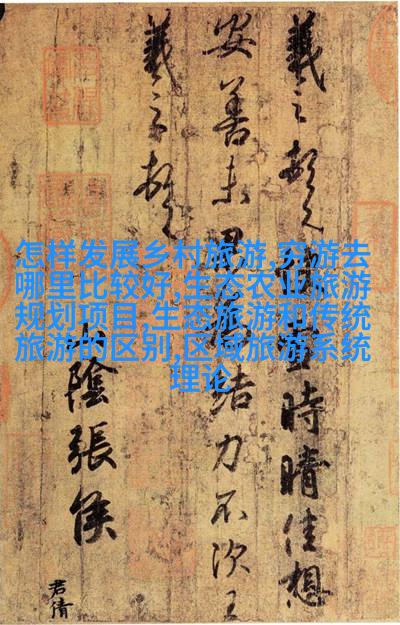 怎样发展乡村旅游,穷游去
哪里比较好,生态农业旅游
规划项目,生态旅游和传统
旅游的区别,区域旅游系统
理论
羲之頓首雪時晴佳想
安善未果結力不次王
羲之頓首
山陰張侯
君倩